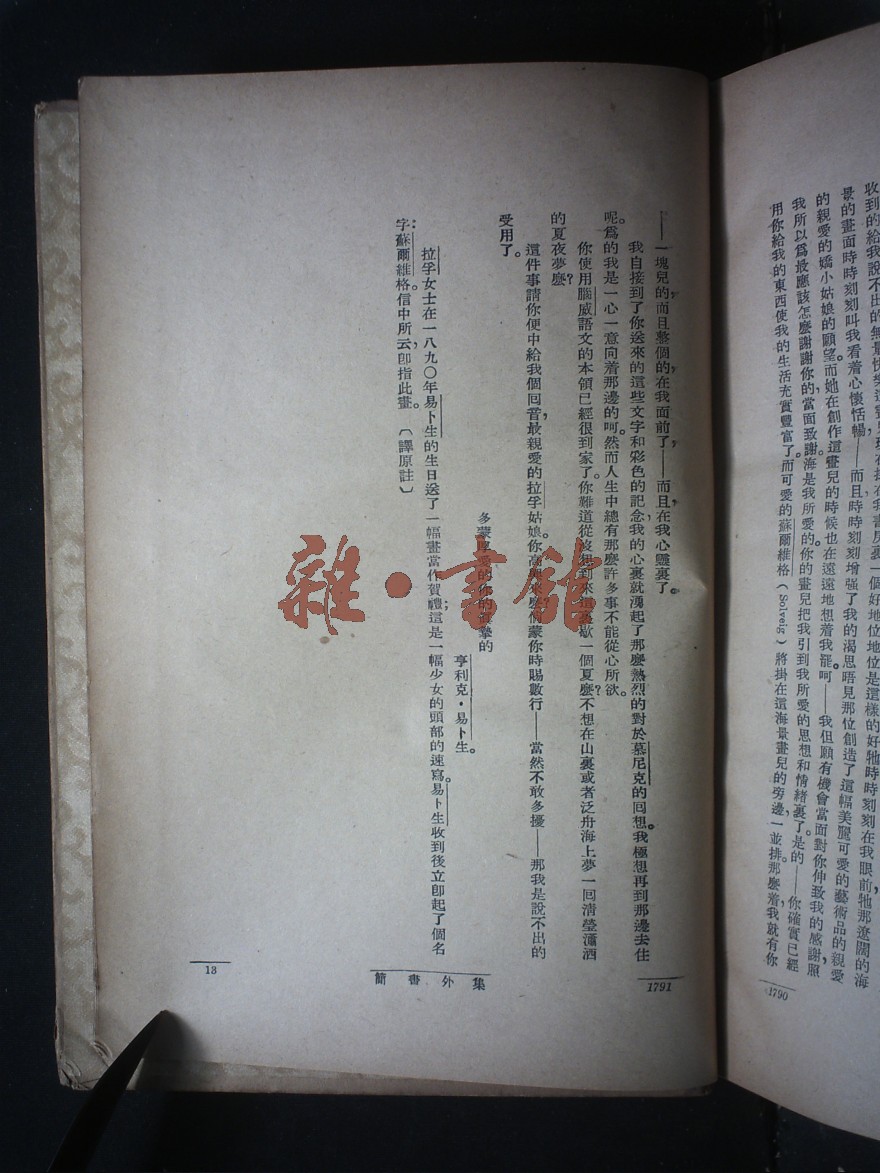 收到的給我說不出的無量快樂這畫兒現在掛在我書房裏一個好地位地位是這樣的好牠時時刻刻在我眼前牠那遼闊的海
景的畫面時時刻刻叫我看着心懷恬暢——而且時時刻刻增強了我的渴思晤見那位創造了這幅美麗可愛的藝術品的親愛
的親愛的嬌小姑娘的願望而她在創作這畫兒的時候也在遠遠地想着我罷呵——我但願有機會當面對你伸致我的感謝，照
我所以為最應該怎麼謝謝你的，當面致謝。海是我所愛的你的畫兒把我引到我所愛的思想和情緒裏了是的——你確實已經
用你給我的東西使我的生活充實豐富了而可愛的蘇爾維格（Solveig）將掛在這海景畫兒的旁邊，一並排那麼着，我就有你
1790
——一塊兒的，而且整個的，在我面前了，——而且，在我心靈裏了。
我自接到了你送來的這些文字和彩色的記念，我的心裏就湧起了那麼熱烈的對於慕尼克的囘想。我極想再到那邊去住
呢。爲的我是一心一意向着那邊的呵。然而人生中總有那麼許多事不能從心所欲。
你使用腦威語文的本領已經很到家了。你難道從沒想到來這裏歇一個夏麼？不想在山裏或者泛舟海上夢一囘清瑩瀟洒
的夏夜夢麼？
這件事請你便中給我個囘音，最親愛的拉孚姑娘。你高興來麼？倘蒙你時賜數行——當然不敢多擾——那我是說不出的
受用了。
多蒙厚愛的你的 摯的
亨利克·易卜生。
拉孚女士在一八九〇年易卜生的生日送了一幅畫當作賀禮；這是一幅少女的頭部的速寫。易卜生收到後立卽起了個名
字：蘇爾維格。信中所云，卽指此畫。〔譯原註〕
集外書簡
1791
13
雜·書館